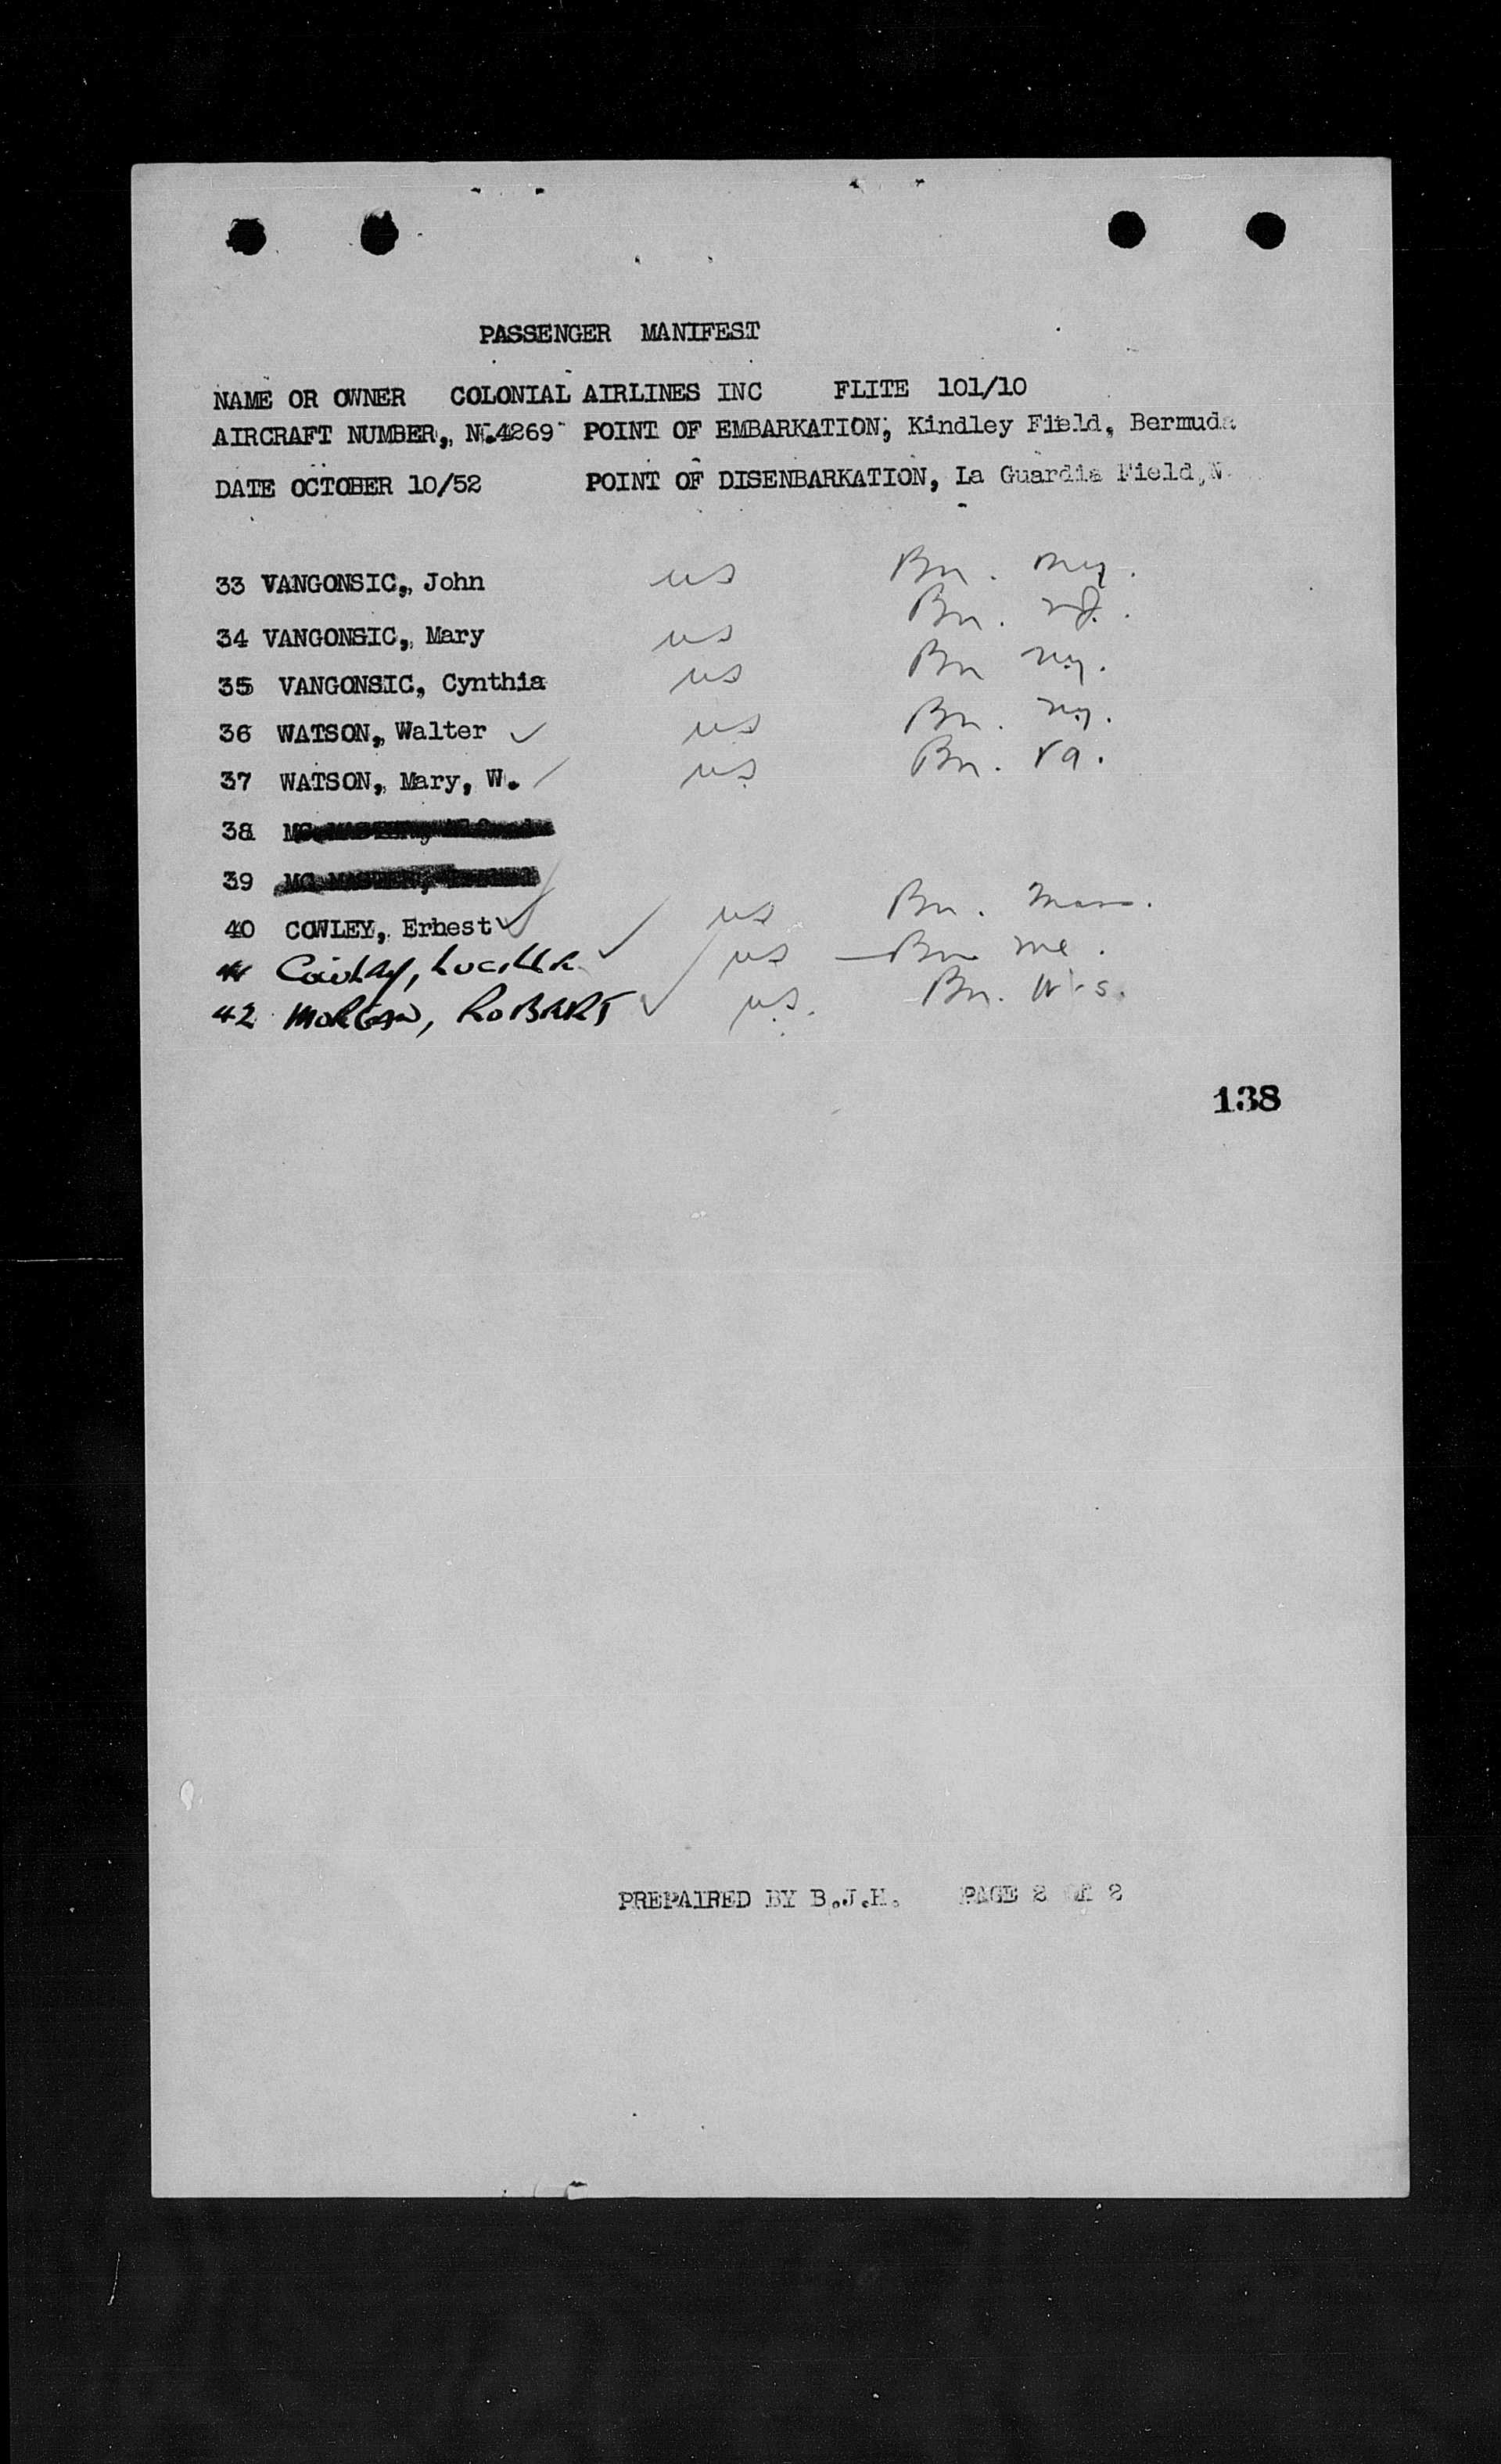 PASSENGER MANIFEST
NAME OR OWNER COLONIAL AIRLINES INC FLITE 101/10
AIRCRAFT NUMBER, N.4269 POINT OF EMBARKATION, Kindley Field, Bermuda
DATE OCTOBER 10/52 POINT OF DISENBARKATION, La Guardia Field, N
33 VANGONSIC, John us Bn. ny.
34 VANGONSIC, Mary us Bn. nj.
35 VANGONSIC, Cynthia us Bn ny.
36 WATSON, Walter ✓ us Bn. ny.
37 WATSON, Mary, W. us Bn. Va.
38
39 MC MASTER,
40 COWLEY, Erhest ✓ us Bn. Mass.
41 Cowley, Lucille ✓ us Bn me.
42 MORGAN, ROBERT ✓ us. Bn. Wis.
138
PREPAIRED BY B.J.H. PAGE 2 OF 2